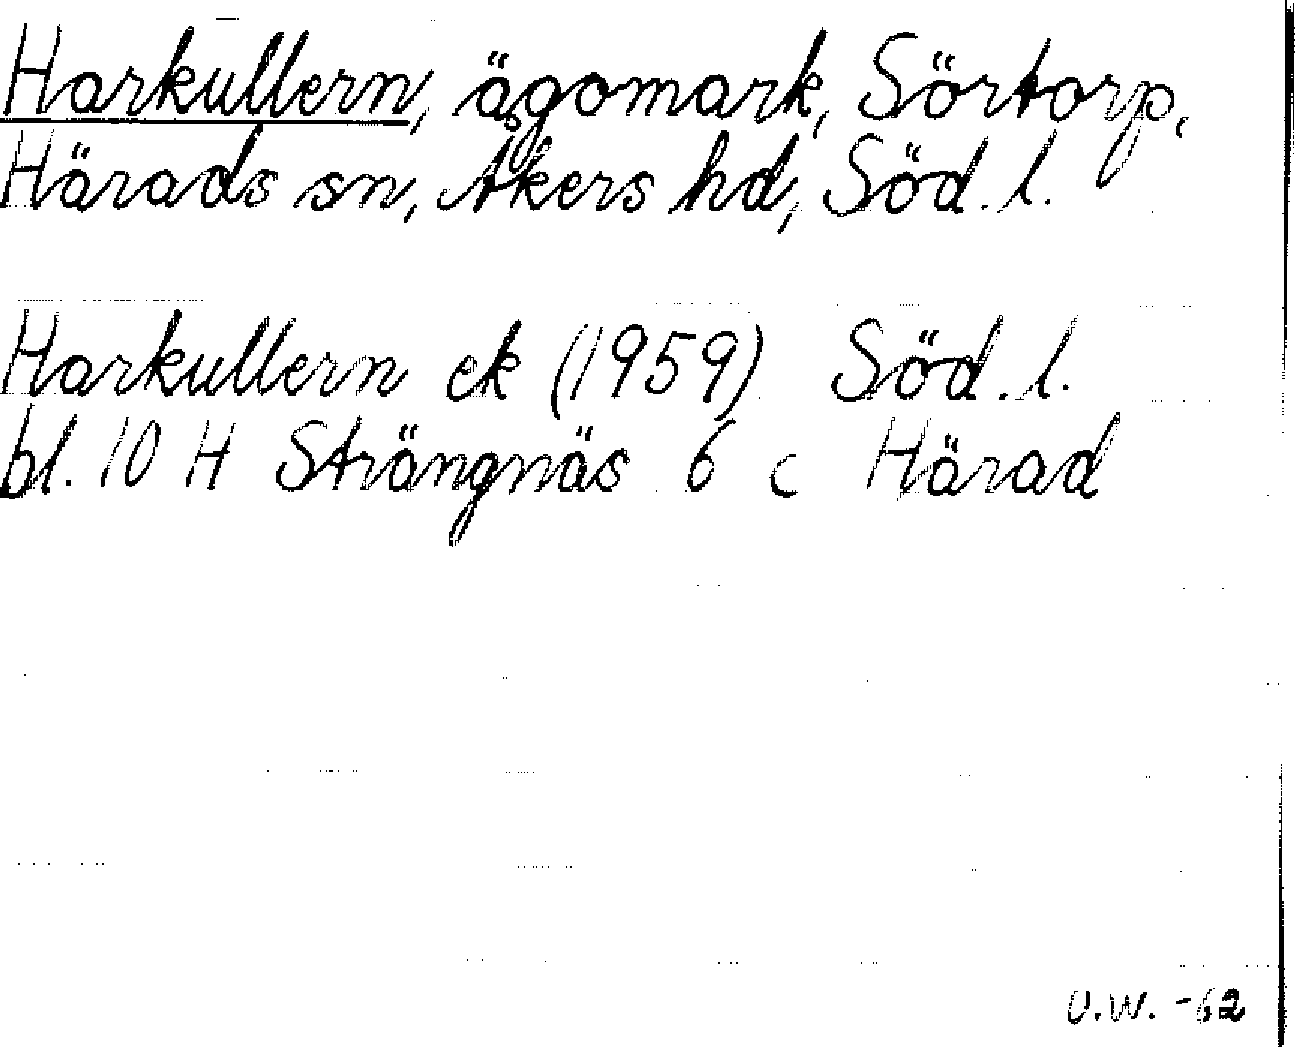 Harkullern, ägomark, Sörtorp,
Härads sn, Åkers hd, Söd. l.
Harkullern ek (1959) Söd. l.
bl. 10 H Strängnäs 6 c Härad
U.W. -62